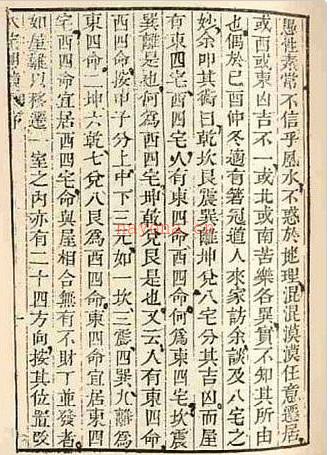 愚性素常不信乎風水不惑於地理混混漠漠任意遷居
或西或東凶吉不一或北或南苦樂各異實不知其所由
也偶於己酉仲冬適有箬冠道人來家訪余談及八宅之
妙余叩其術曰乾坎艮震巽離坤兌八宅分其吉凶而屋
有東四宅西四宅人有東四命西四命何爲東四宅坎震
巽離是也何爲西四宅坤乾兌艮是也又云人有東四命
西四命按甲子分上中下三元如一坎三震四巽九離爲
東四命二坤六乾七兌八艮爲西四命東四命宜居東四
宅西四命宜居西四宅命與屋相合無有不財丁並發者
如屋難以移遷一室之內亦有二十四方向按其位置